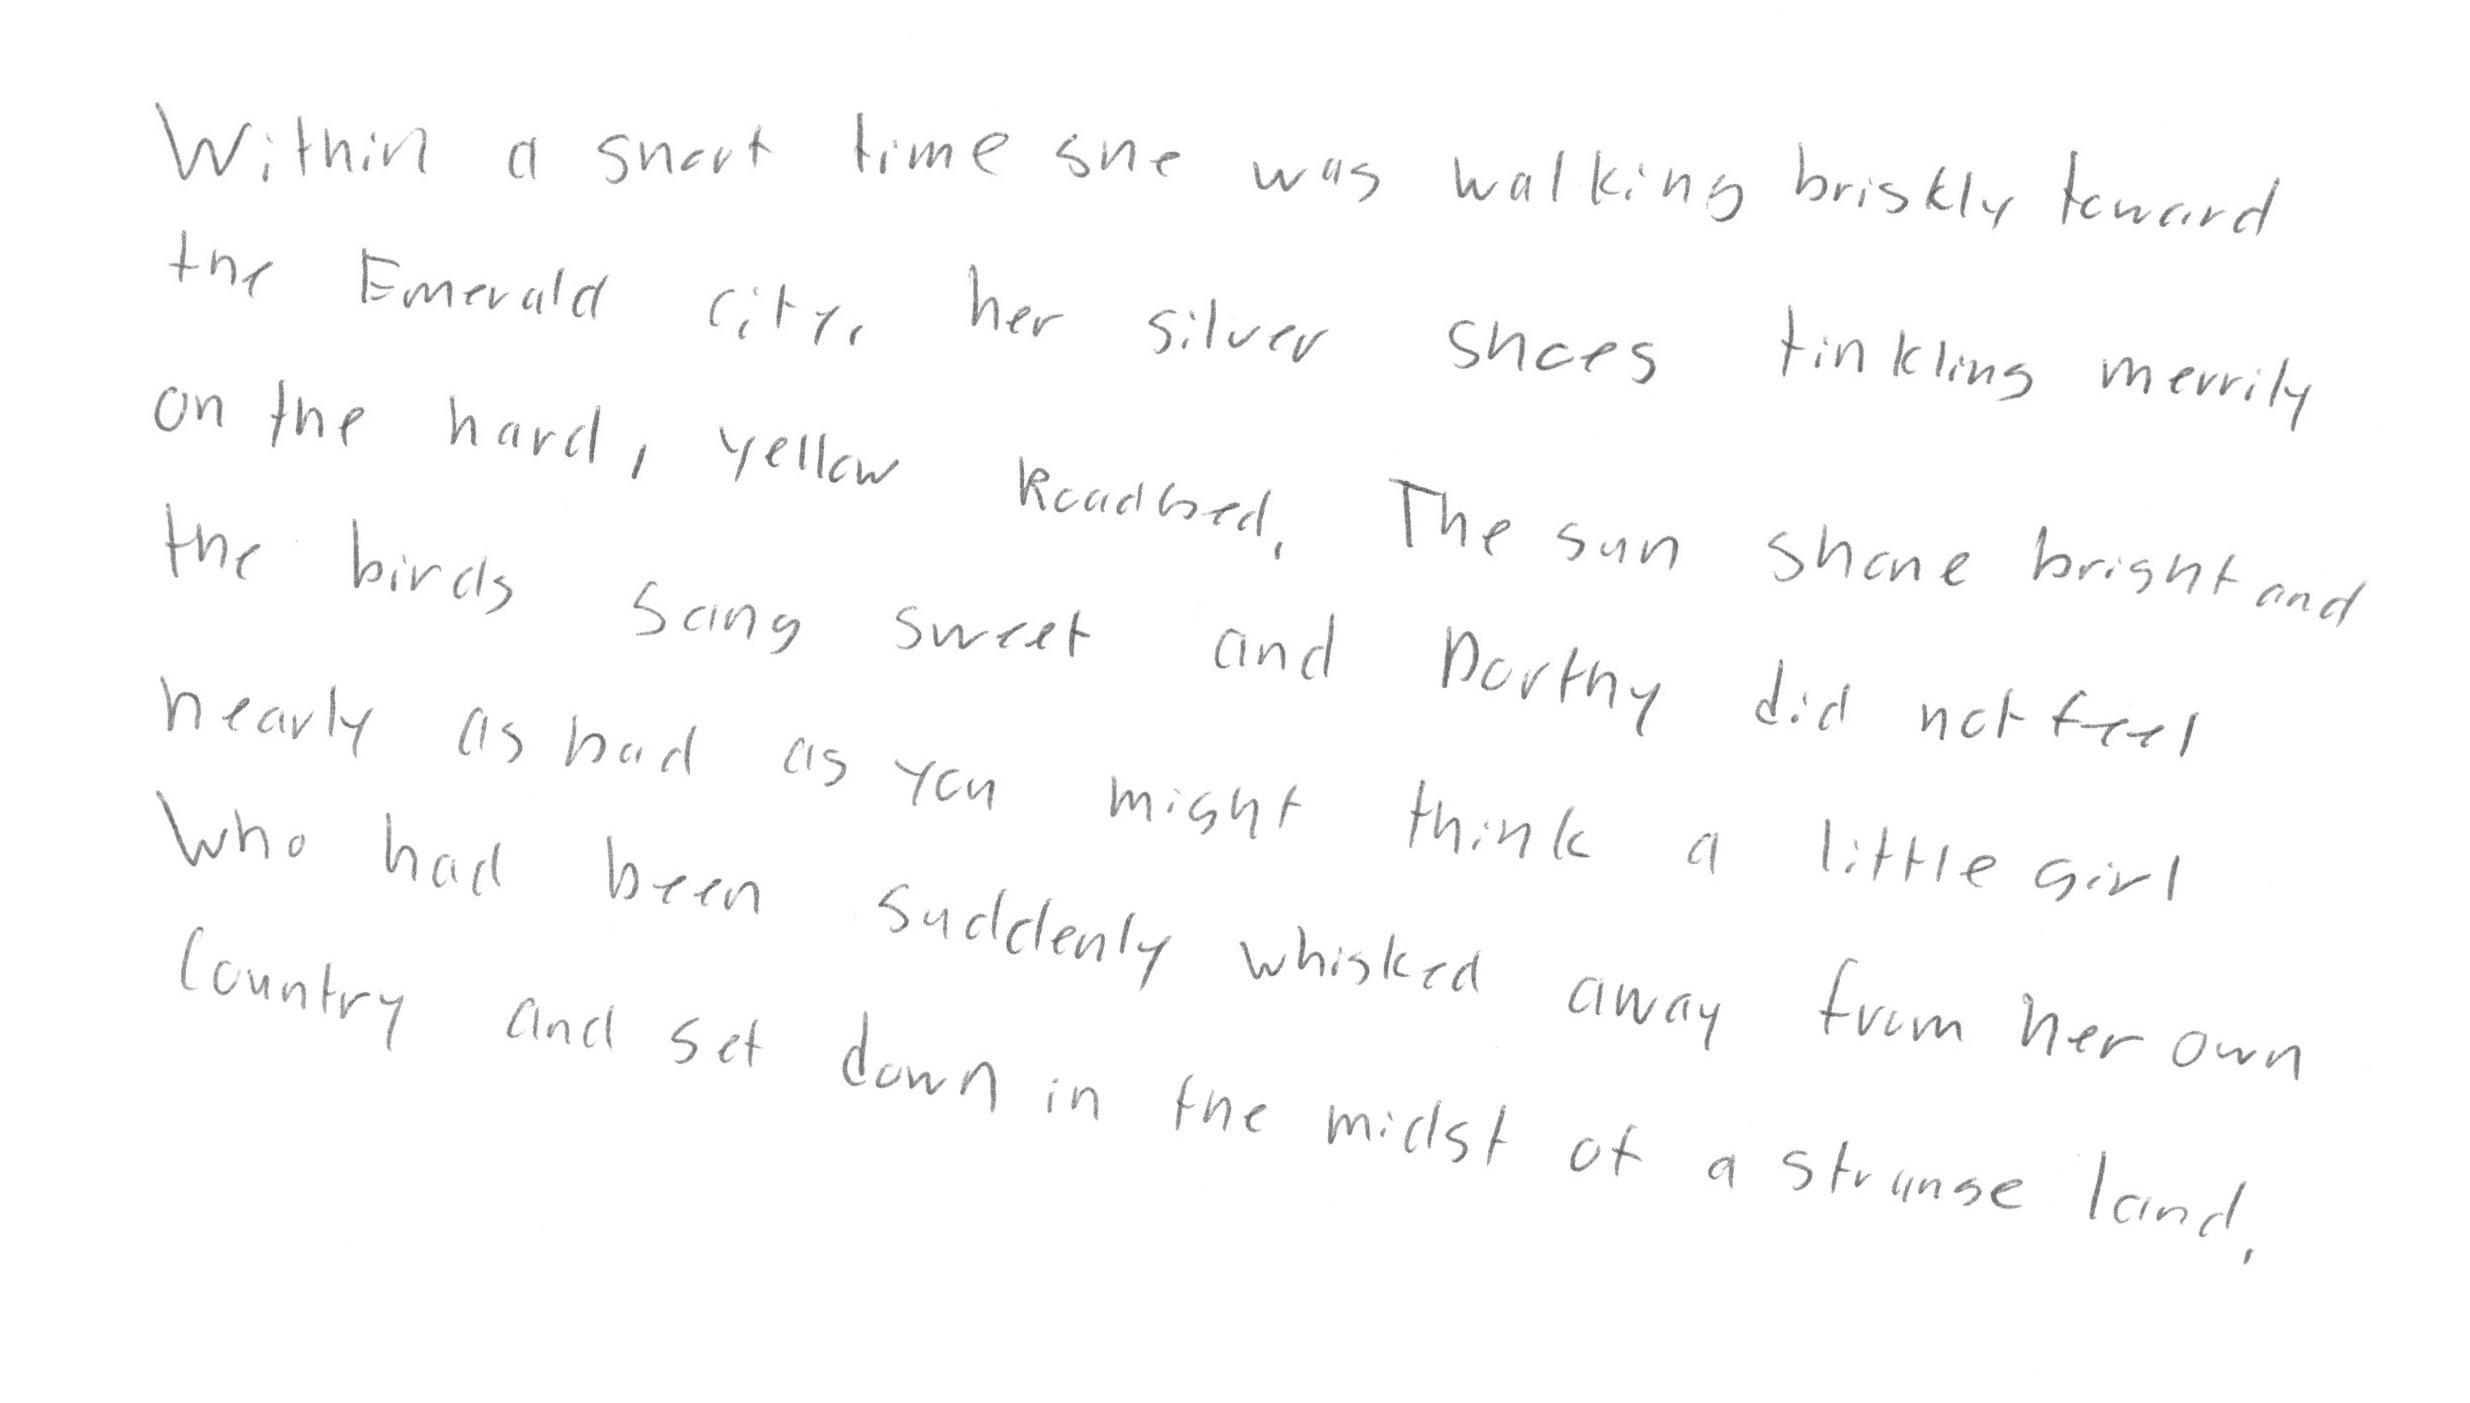 Within a short time she was walking briskly toward
the Emerald City, her silver shoes tinkling merrily
on the hard, yellow Roadbed. The sun shone bright and
the birds sang sweet and Dorthy did not feel
nearly as bad as you might think a little girl
Who had been suddenly whisked away from her own
Country and set down in the midst of a strange land.